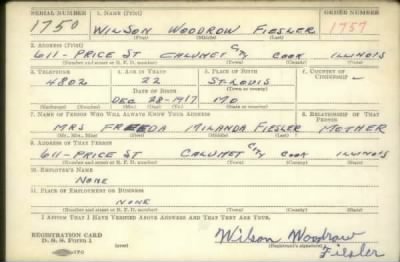 SERIAL NUMBER 1. NAME (Print) ORDER NUMBER
1750 WILSON WOODROW FIESLER 1757
(First) (Middle) (Last)
2. ADDRESS (Print)
611-PRICE ST CALUMET CITY COOK ILLINOIS
(Number and street or R. F. D. number) (Town) (County) (State)
3. TELEPHONE 4. AGE IN YEARS 5. PLACE OF BIRTH 6. COUNTRY OF CITIZENSHIP
4802 22 ST-LOUIS
DATE OF BIRTH (Town or county)
DEC 28-1917 MO
(Exchange) (Number) (Mo.) (Day) (Yr.) (State or country)
7. NAME OF PERSON WHO WILL ALWAYS KNOW YOUR ADDRESS 8. RELATIONSHIP OF THAT PERSON
MRS FREEDA MILANDA FIESLER MOTHER
(Mr., Mrs., Miss) (First) (Middle) (Last)
9. ADDRESS OF THAT PERSON
611-PRICE ST CALUMET CITY COOK ILLINOIS
(Number and street or R. F. D. number) (Town) (County) (State)
10. EMPLOYER'S NAME
NONE
11. PLACE OF EMPLOYMENT OR BUSINESS
NONE
(Number and street or R. F. D. number) (Town) (County) (State)
I AFFIRM THAT I HAVE VERIFIED ABOVE ANSWERS AND THAT THEY ARE TRUE.
REGISTRATION CARD
D. S. S. Form 1 (over) Wilson Woodrow
(Registrant's signature)
Fiesler